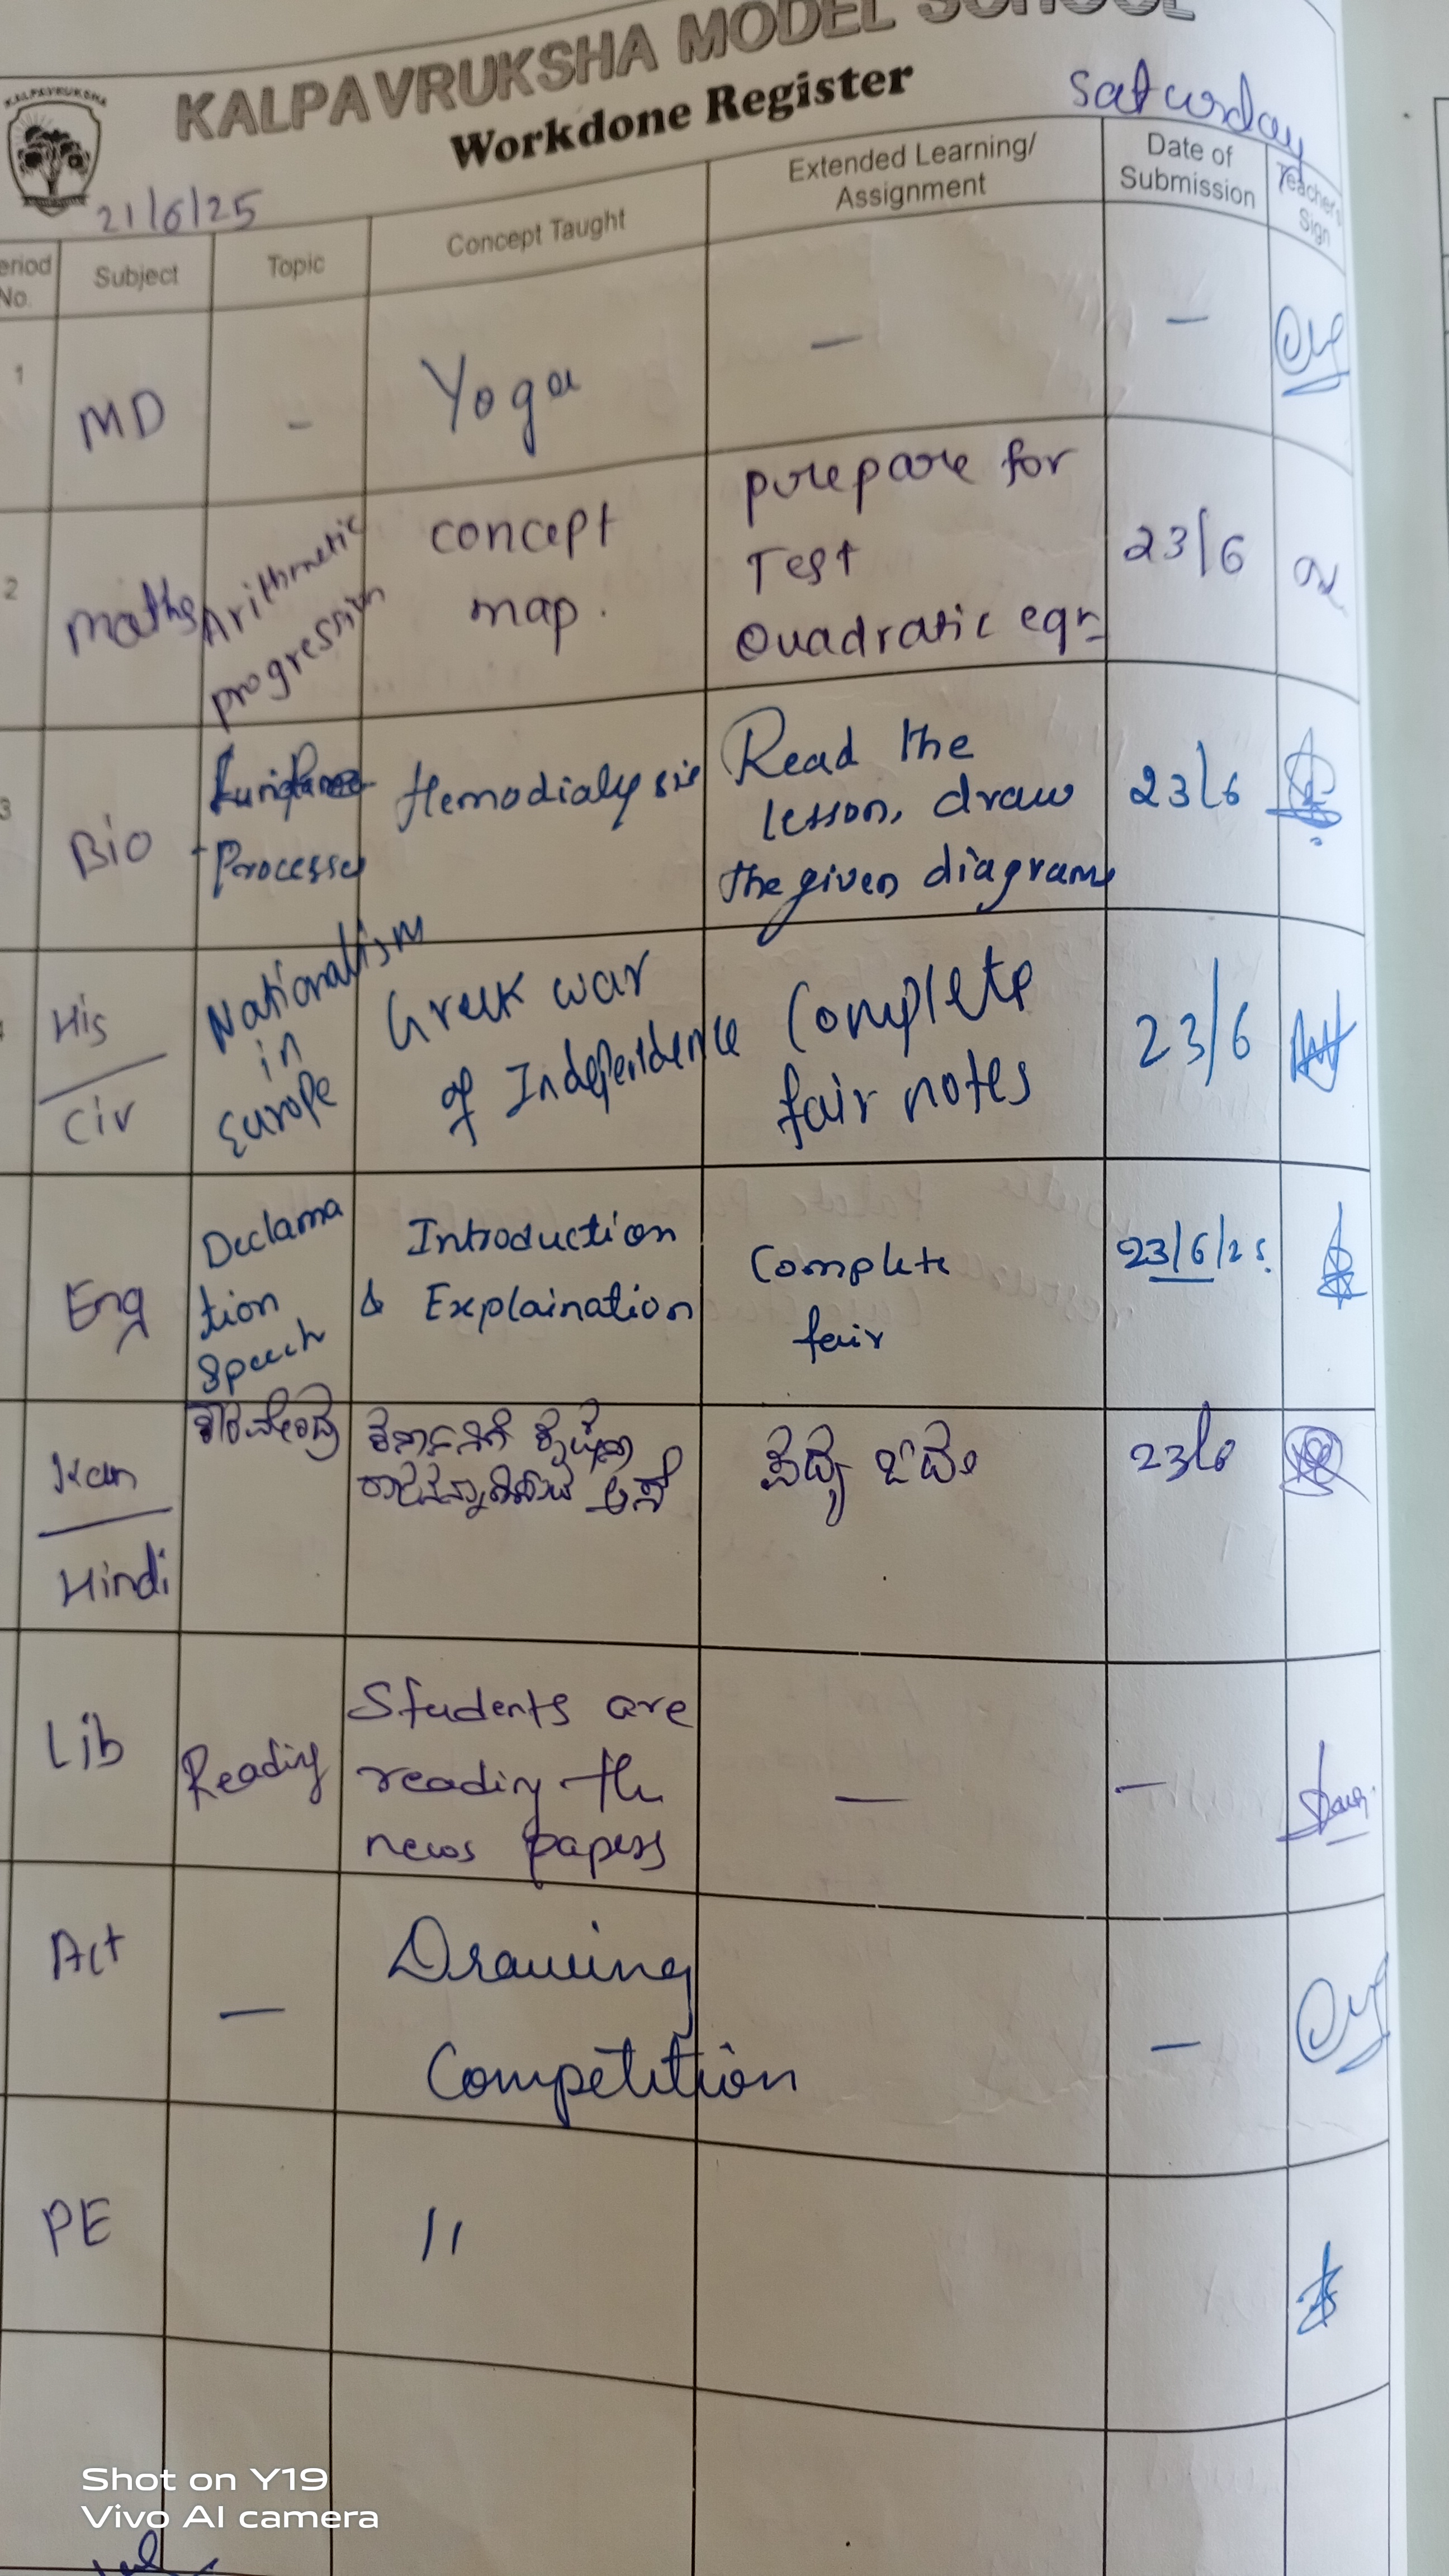 KALPAVRUKSHA MODEL SCHOOL
KALPAVRUKSHA
Workdone Register
Saturday
21/6/25
Period No.
Subject
Topic
Concept Taught
Extended Learning/
Assignment
Date of
Submission
Teacher's
Sign
1
MD
-
Yoga
—
—
2
Maths
Arithmetic
progression
concept
map.
prepare for
Test
Quadratic eqn
23/6
3
Bio
Processes
Hemodialysis
Read the
lesson, draw
the given diagrams
23/6
His
Civ
Nationalism
in
Europe
Greek war
of Independence
Complete
fair notes
23/6
Eng
Declama
tion
Speech
Introduction
& Explaination
Complete
fair
23/6/25.
Kan
Hindi
23/6
Lib
Reading
Students are
reading the
news papers
—
—
Act
—
Drawing
Competition
—
PE
11
Shot on Y19
Vivo AI camera